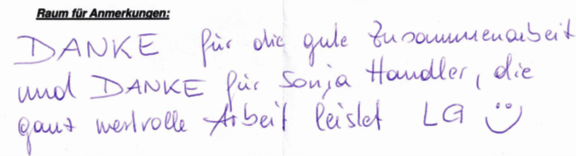 Raum für Anmerkungen:
DANKE für die gute Zusammenarbeit
und DANKE für Sonja Handler, die
ganz wertvolle Arbeit leistet LG